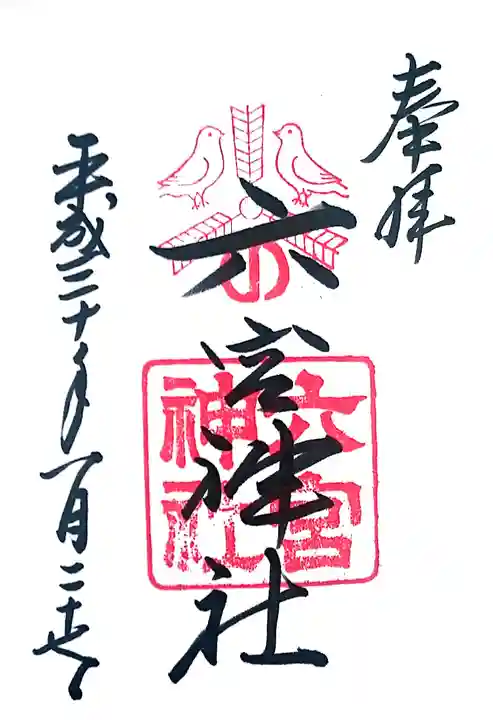 奉拝
六宮神社
六宮
神社
平成三十年一月二十七日